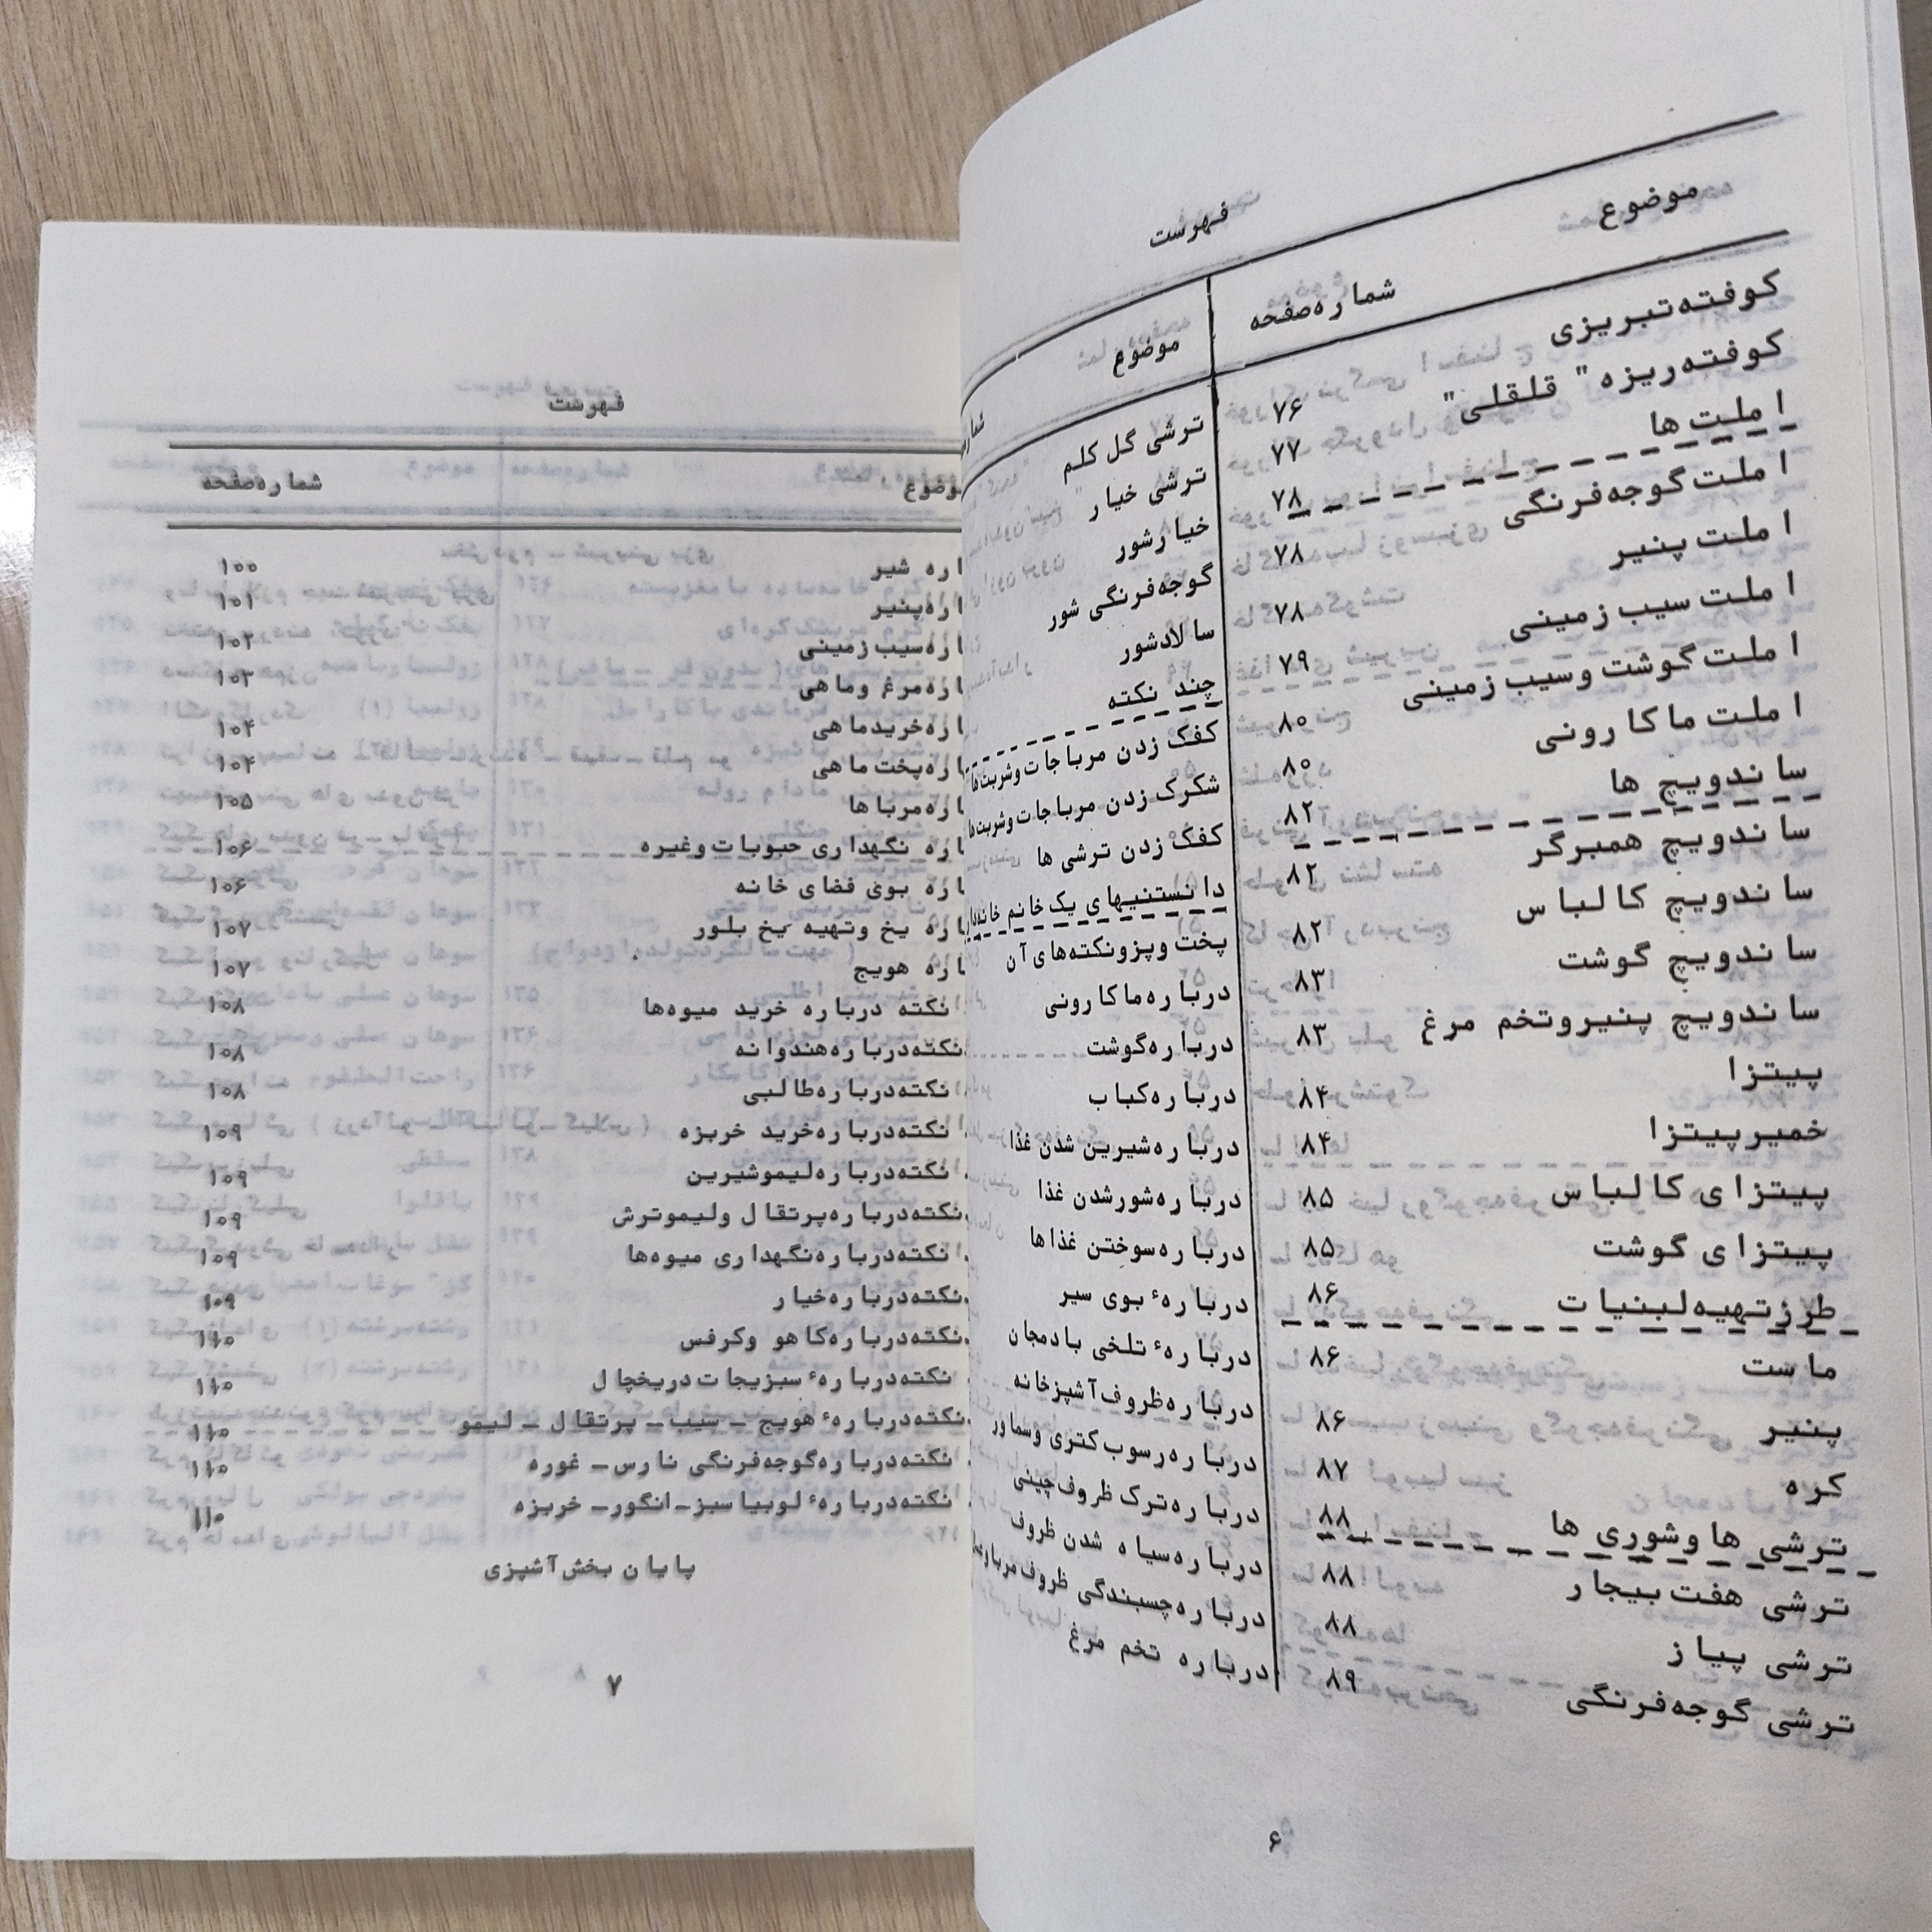 فهرست
موضوع
شماره صفحه
کوفته تبریزی
۷۶
کوفته ریزه " قلقلی "
۷۷
املت ها
۷۸
املت گوجه فرنگی
۷۸
املت پنیر
۷۸
املت سیب زمینی
۷۹
املت گوشت و سیب زمینی
۸۰
املت ماکارونی
۸۰
ساندویچ ها
۸۲
ساندویچ همبرگر
۸۲
ساندویچ کالباس
۸۲
ساندویچ گوشت
۸۳
ساندویچ پنیر و تخم مرغ
۸۳
پیتزا
۸۴
خمیر پیتزا
۸۴
پیتزای کالباس
۸۵
پیتزای گوشت
۸۵
طرز تهیه لبنیات
۸۶
ماست
۸۶
پنیر
۸۶
کره
۸۷
ترشی ها و شوری ها
۸۸
ترشی هفت بیجار
۸۸
ترشی پیاز
۸۸
ترشی گوجه فرنگی
۸۹
موضوع
ترشی گل کلم
ترشی خیار
خیارشور
گوجه فرنگی شور
سالادشور
چند نکته
کفک زدن مرباجات و شربت ها
شکرک زدن مرباجات و شربت ها
کفک زدن ترشی ها
دانستنیهای یک خانم خانه‌دار
پخت و پز و نکته های آن
درباره ماکارونی
درباره گوشت
درباره کباب
درباره شیرین شدن غذا
درباره شورشدن غذا
درباره سوختن غذاها
درباره‌ٔ بوی سیر
درباره‌ٔ تلخی بادمجان
درباره ظروف آشپزخانه
درباره رسوب کتری و سماور
درباره ترک ظروف چینی
درباره سیاه شدن ظروف
درباره چسبندگی ظروف مربا و
درباره تخم مرغ
۶
فهرست
شماره صفحه
شیر
۱۰۰
پنیر
۱۰۱
سیب زمینی
۱۰۲
مرغ و ماهی
۱۰۳
خرید ماهی
۱۰۴
پخت ماهی
۱۰۴
مرباها
۱۰۵
نگهداری حبوبات و غیره
۱۰۶
بوی فضای خانه
۱۰۶
یخ و تهیه یخ بلور
۱۰۷
هویج
۱۰۷
نکته درباره خرید میوه‌ها
۱۰۸
نکته درباره هندوانه
۱۰۸
نکته درباره طالبی
۱۰۸
نکته درباره خرید خربزه
۱۰۹
نکته درباره لیموشیرین
۱۰۹
نکته درباره پرتقال و لیموترش
۱۰۹
نکته درباره نگهداری میوه‌ها
۱۰۹
نکته درباره خیار
۱۰۹
نکته درباره کاهو و کرفس
۱۱۰
نکته درباره‌ٔ سبزیجات در یخچال
۱۱۰
نکته درباره‌ٔ هویج – سیب – پرتقال – لیمو
۱۱۰
نکته درباره گوجه فرنگی نارس – غوره
۱۱۰
نکته درباره‌ٔ لوبیا سبز – انگور – خربزه
۱۱۰
پایان بخش آشپزی
۷